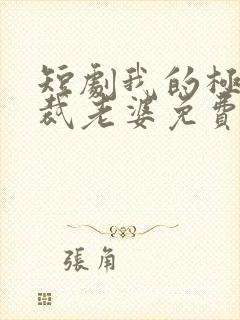 短劇我的極
裁老婆免費
張角